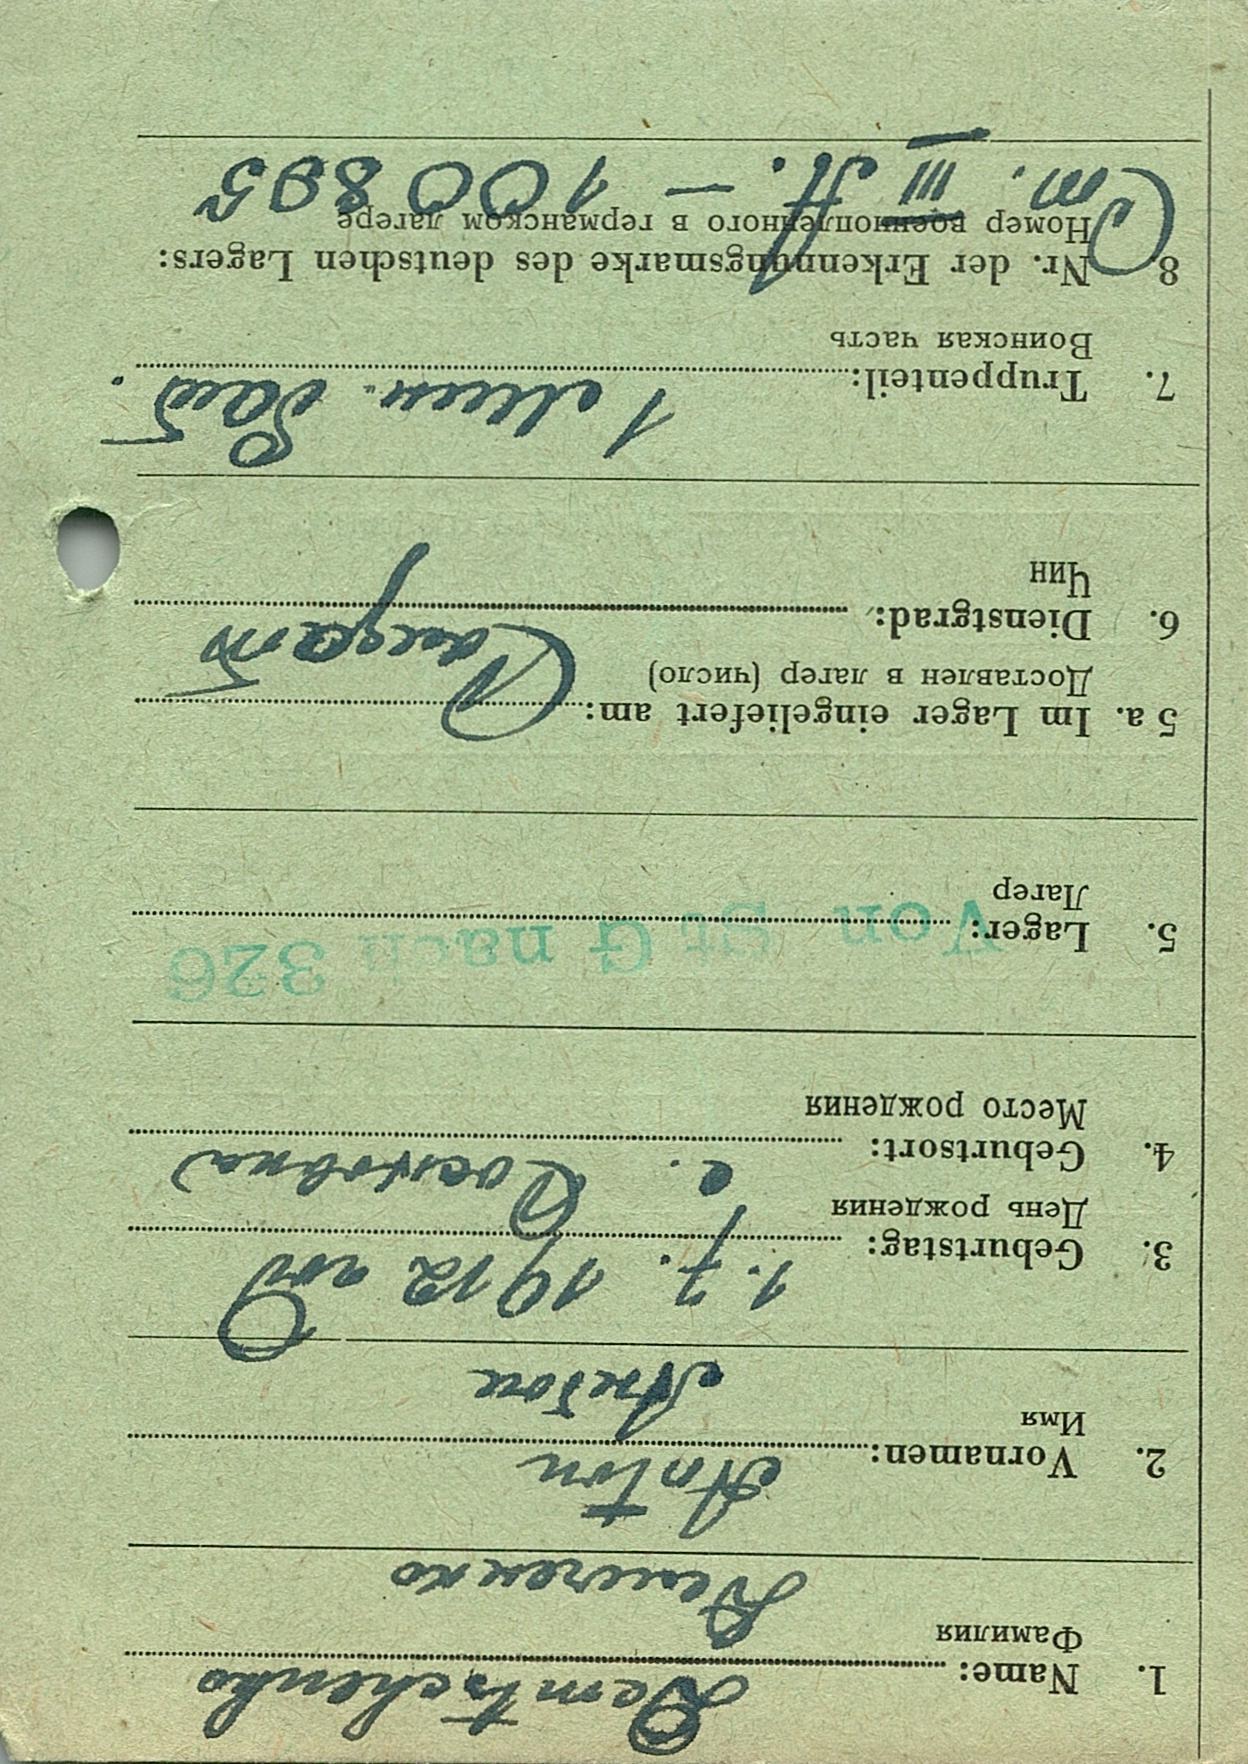 Demtschenko
1. Name:
Фамилия
Демченко
Anton
2. Vornamen:
Имя
Антон
1. 7. 1912 год
3. Geburtstag:
День рождения
с.
4. Geburtsort:
Место рождения
von St G nach 326
5. Lager:
Лагер
5 a. Im Lager eingeliefert am:
Доставлен в лагер (число)
6. Dienstgrad:
Чин
1 мин. бат.
7. Truppenteil:
Воинская часть
8 Nr. der Erkennungsmarke des deutschen Lagers:
Номер военнопленного в германском лагере
Ст. III А. – 100895